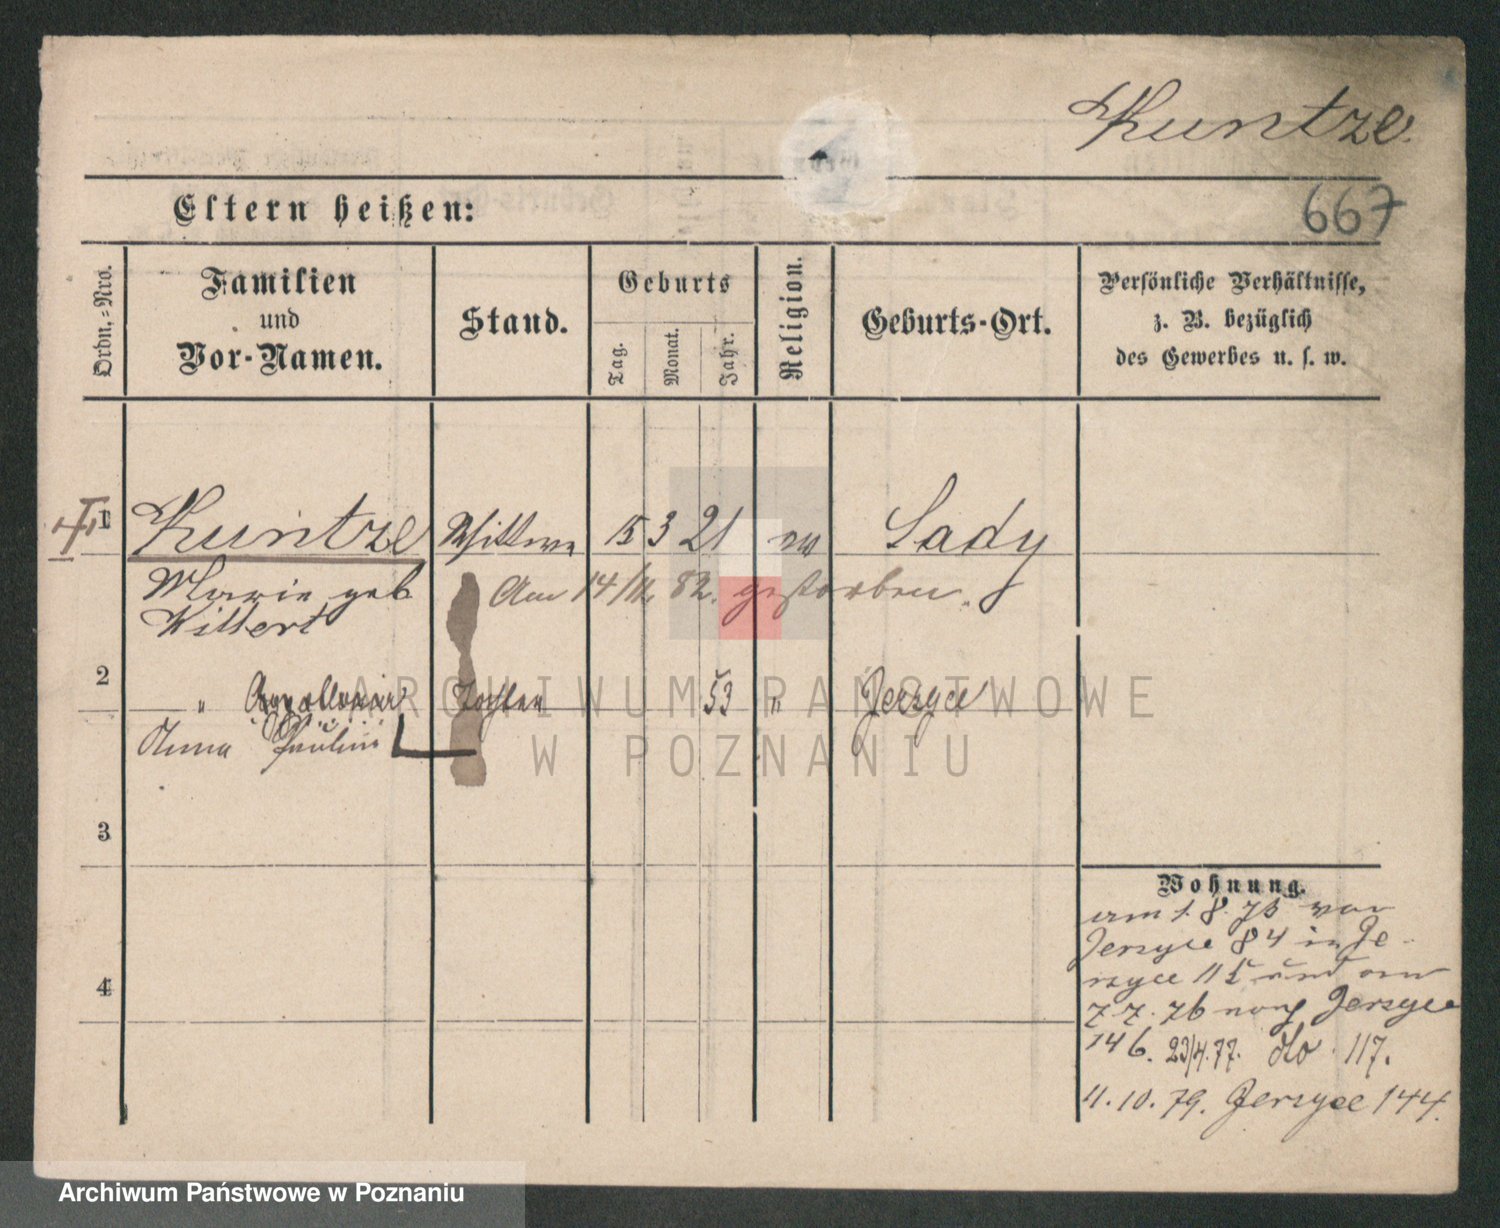 Kuntze
667
Eltern heißen:
Ordn.-Nro.
Familien
und
Vor-Namen.
Stand.
Geburts
Tag.
Monat.
Jahr.
Religion.
Geburts-Ort.
Persönliche Verhältnisse,
z. B. bezüglich
des Gewerbes u. s. w.
1 Kuntze Wittwe 15 3 21 Sady
Marie geb
Wittert
Am 14/11. 82. gestorben.
2 " Tochter 53 " Jerzyce
Anna Pauline
3
4
Wohnung.
am 1. 8. 73 von
Jerzyce 84 in Je-
rzyce 115 und am
7. 7. 76 nach Jerzyce
146. 23/4. 77. dto 117.
11. 10. 79. Jerzyce 144.
ARCHIWUM PAŃSTWOWE
W POZNANIU
Archiwum Państwowe w Poznaniu